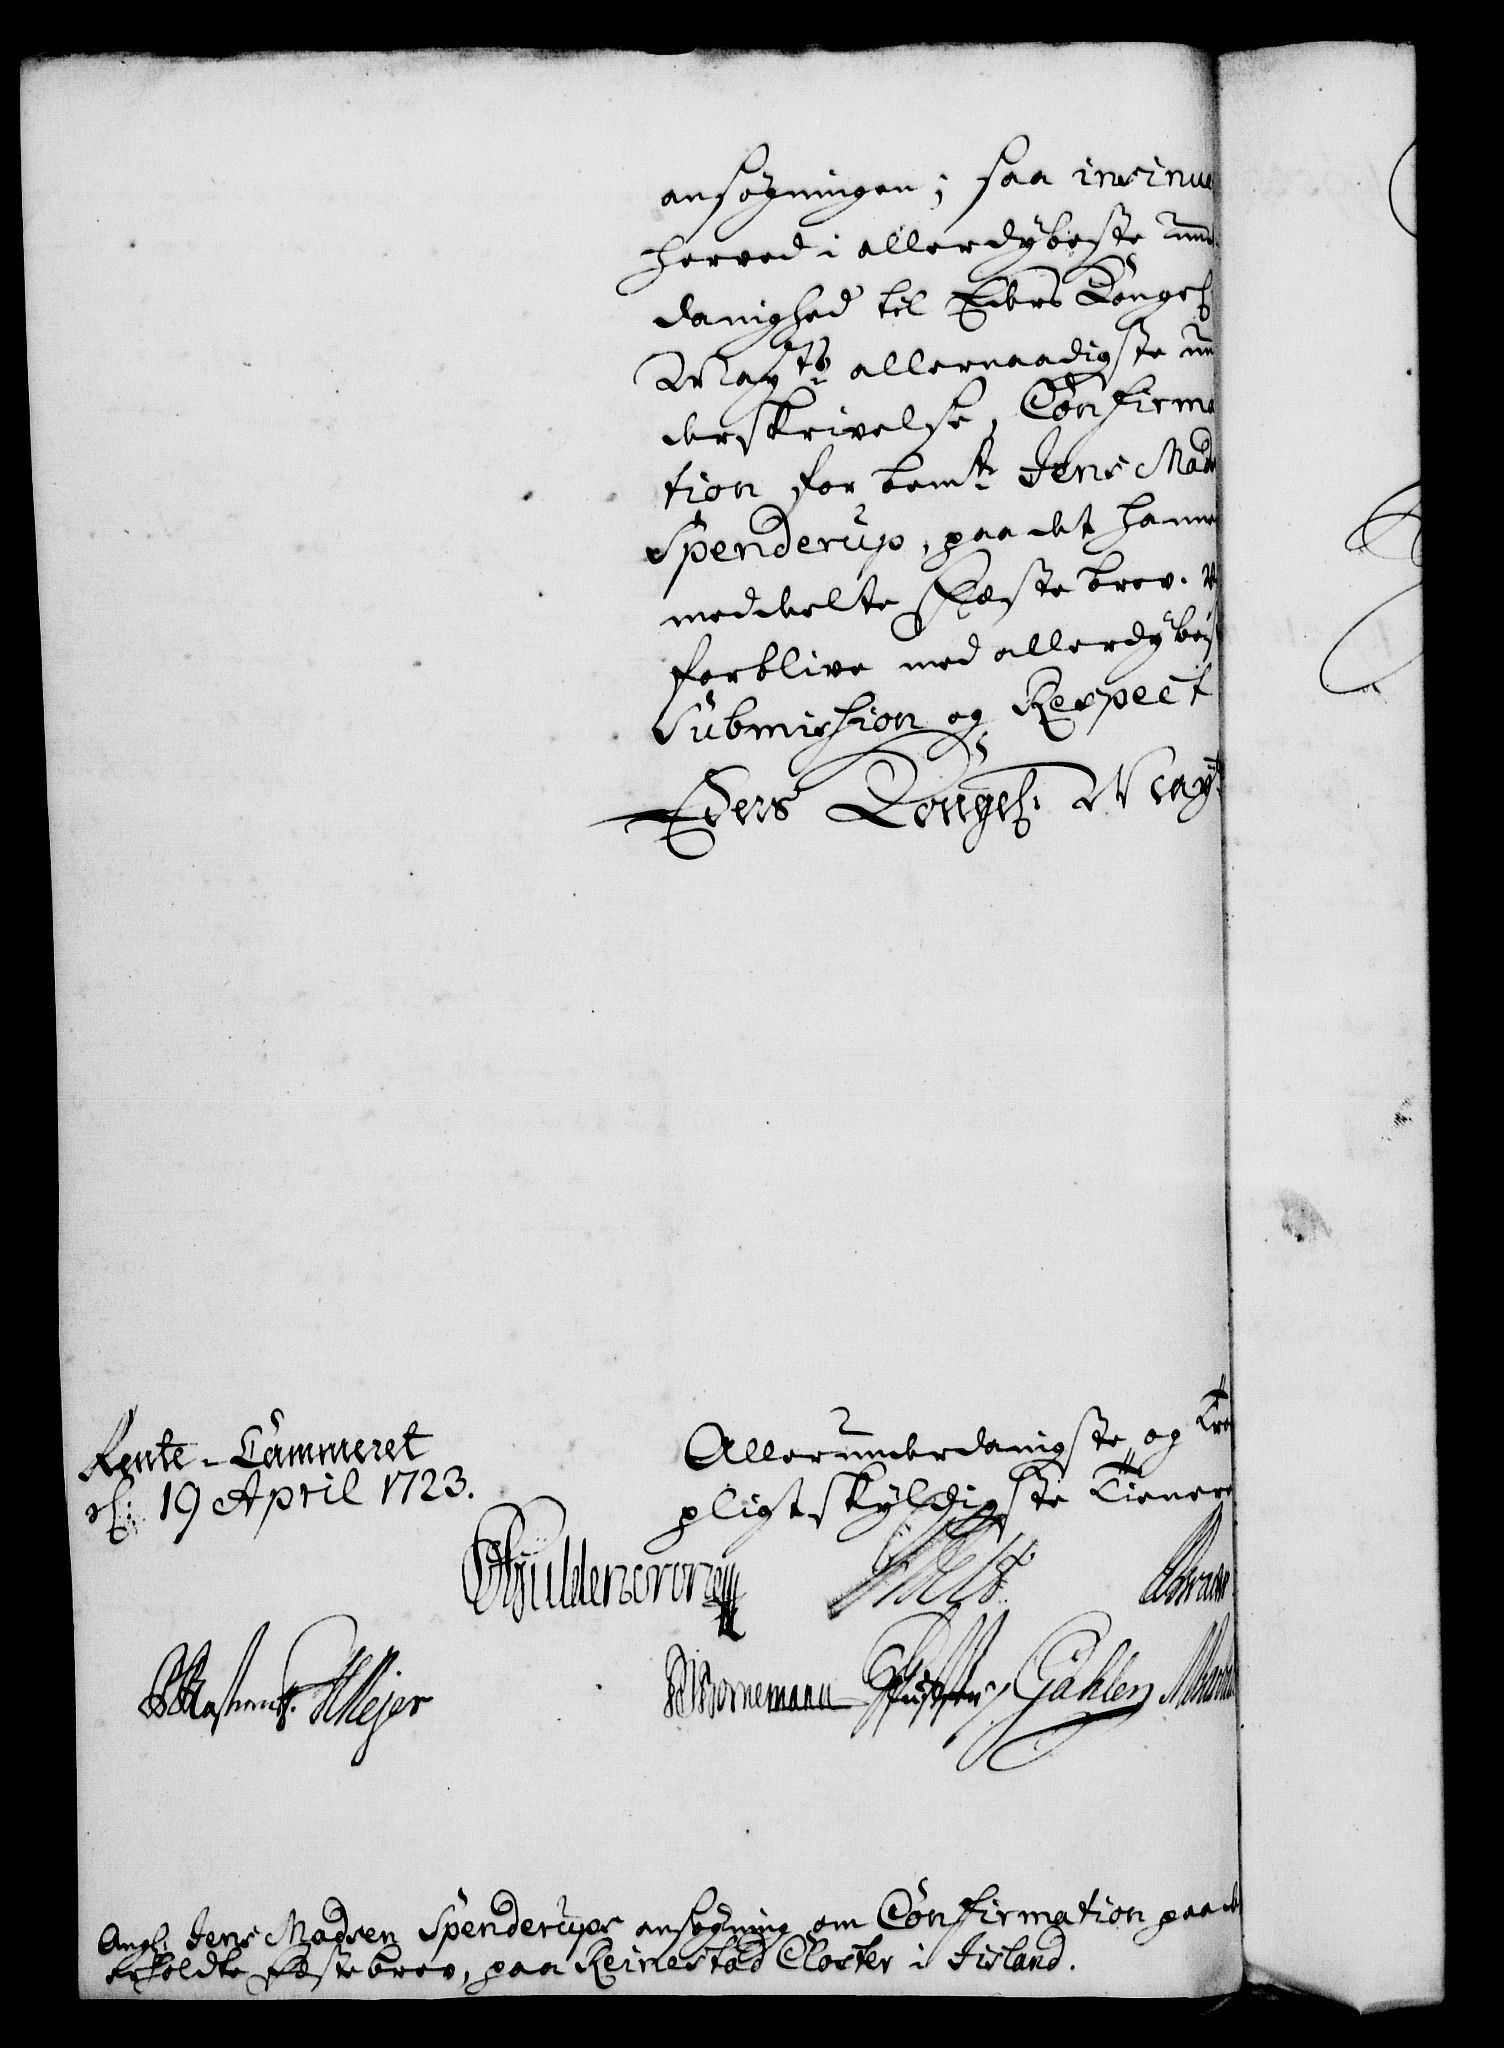 ansøgningen; saa insinue
herved i allerdybeste und
danighed til Eders Kongel
Mayts allernaadigste un
derskrivelse, Confirma
tion for bemte Jens Mads
Spenderup, paa det hannem
meddeelte Fæste brev.
forblive med allerdybes
Submission og Respect
Eders Kongel. Mayt
Rente-Cammeret
d: 19 April 1723.
Allerunderdanigste og tro
pligtskyldigste Tienere
Gyldencrone
HMejer
Bornemann Gählen
Angl. Jens Madsen Spenderups ansøgning om Confirmation paa d
erholdte Fæstebrev, paa Reinestad Closter i Iisland.